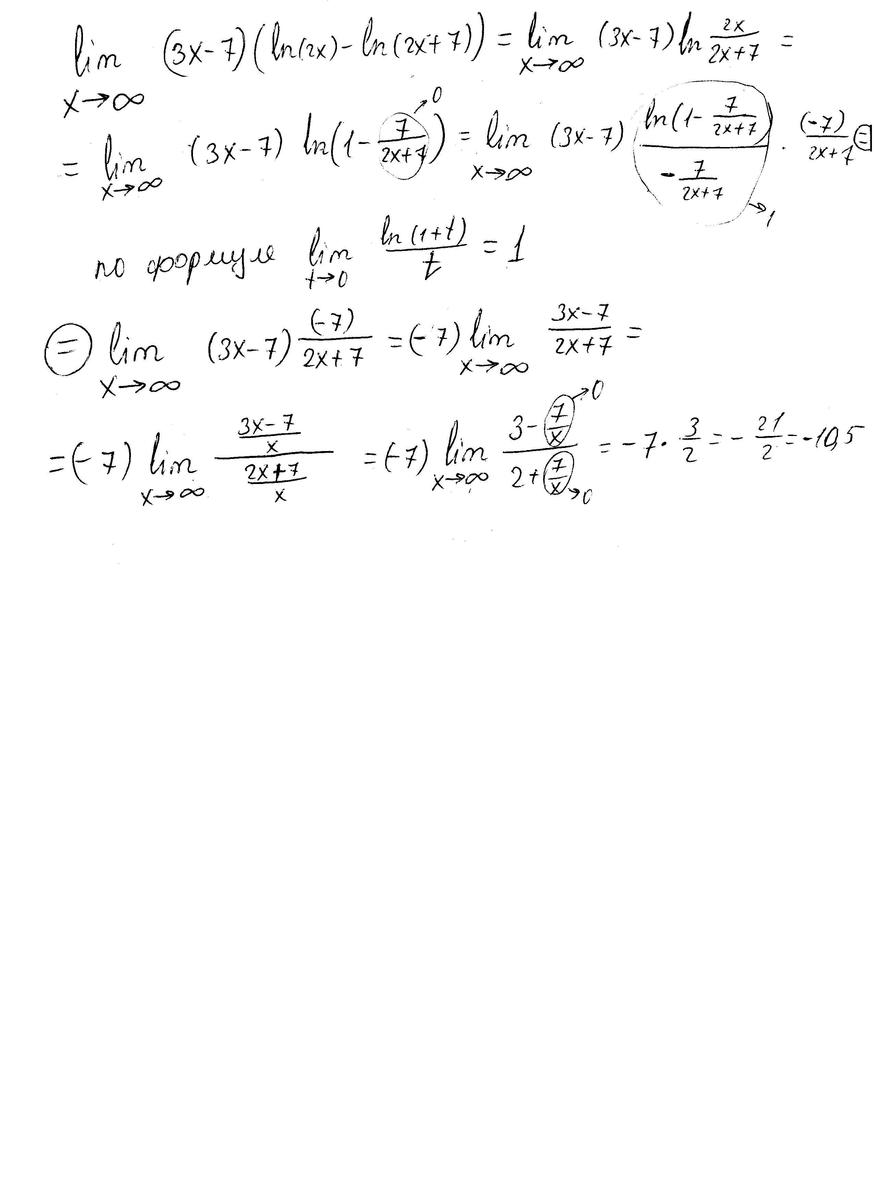 lim x→∞ (3x-7)(ln(2x)-ln(2x+7)) = lim x→∞ (3x-7) ln 2x/(2x+7) =
= lim x→∞ (3x-7) ln(1- 7/(2x+7) →0) = lim x→∞ (3x-7) ln(1- 7/(2x+7)) / (- 7/(2x+7)) →1 · (-7)/(2x+7) ⊜
по формуле lim t→0 ln(1+t)/t = 1
⊜ lim x→∞ (3x-7) (-7)/(2x+7) = (-7) lim x→∞ (3x-7)/(2x+7) =
= (-7) lim x→∞ ((3x-7)/x)/((2x+7)/x) = (-7) lim x→∞ (3- 7/x →0)/(2+ 7/x →0) = -7 · 3/2 = - 21/2 = -10,5